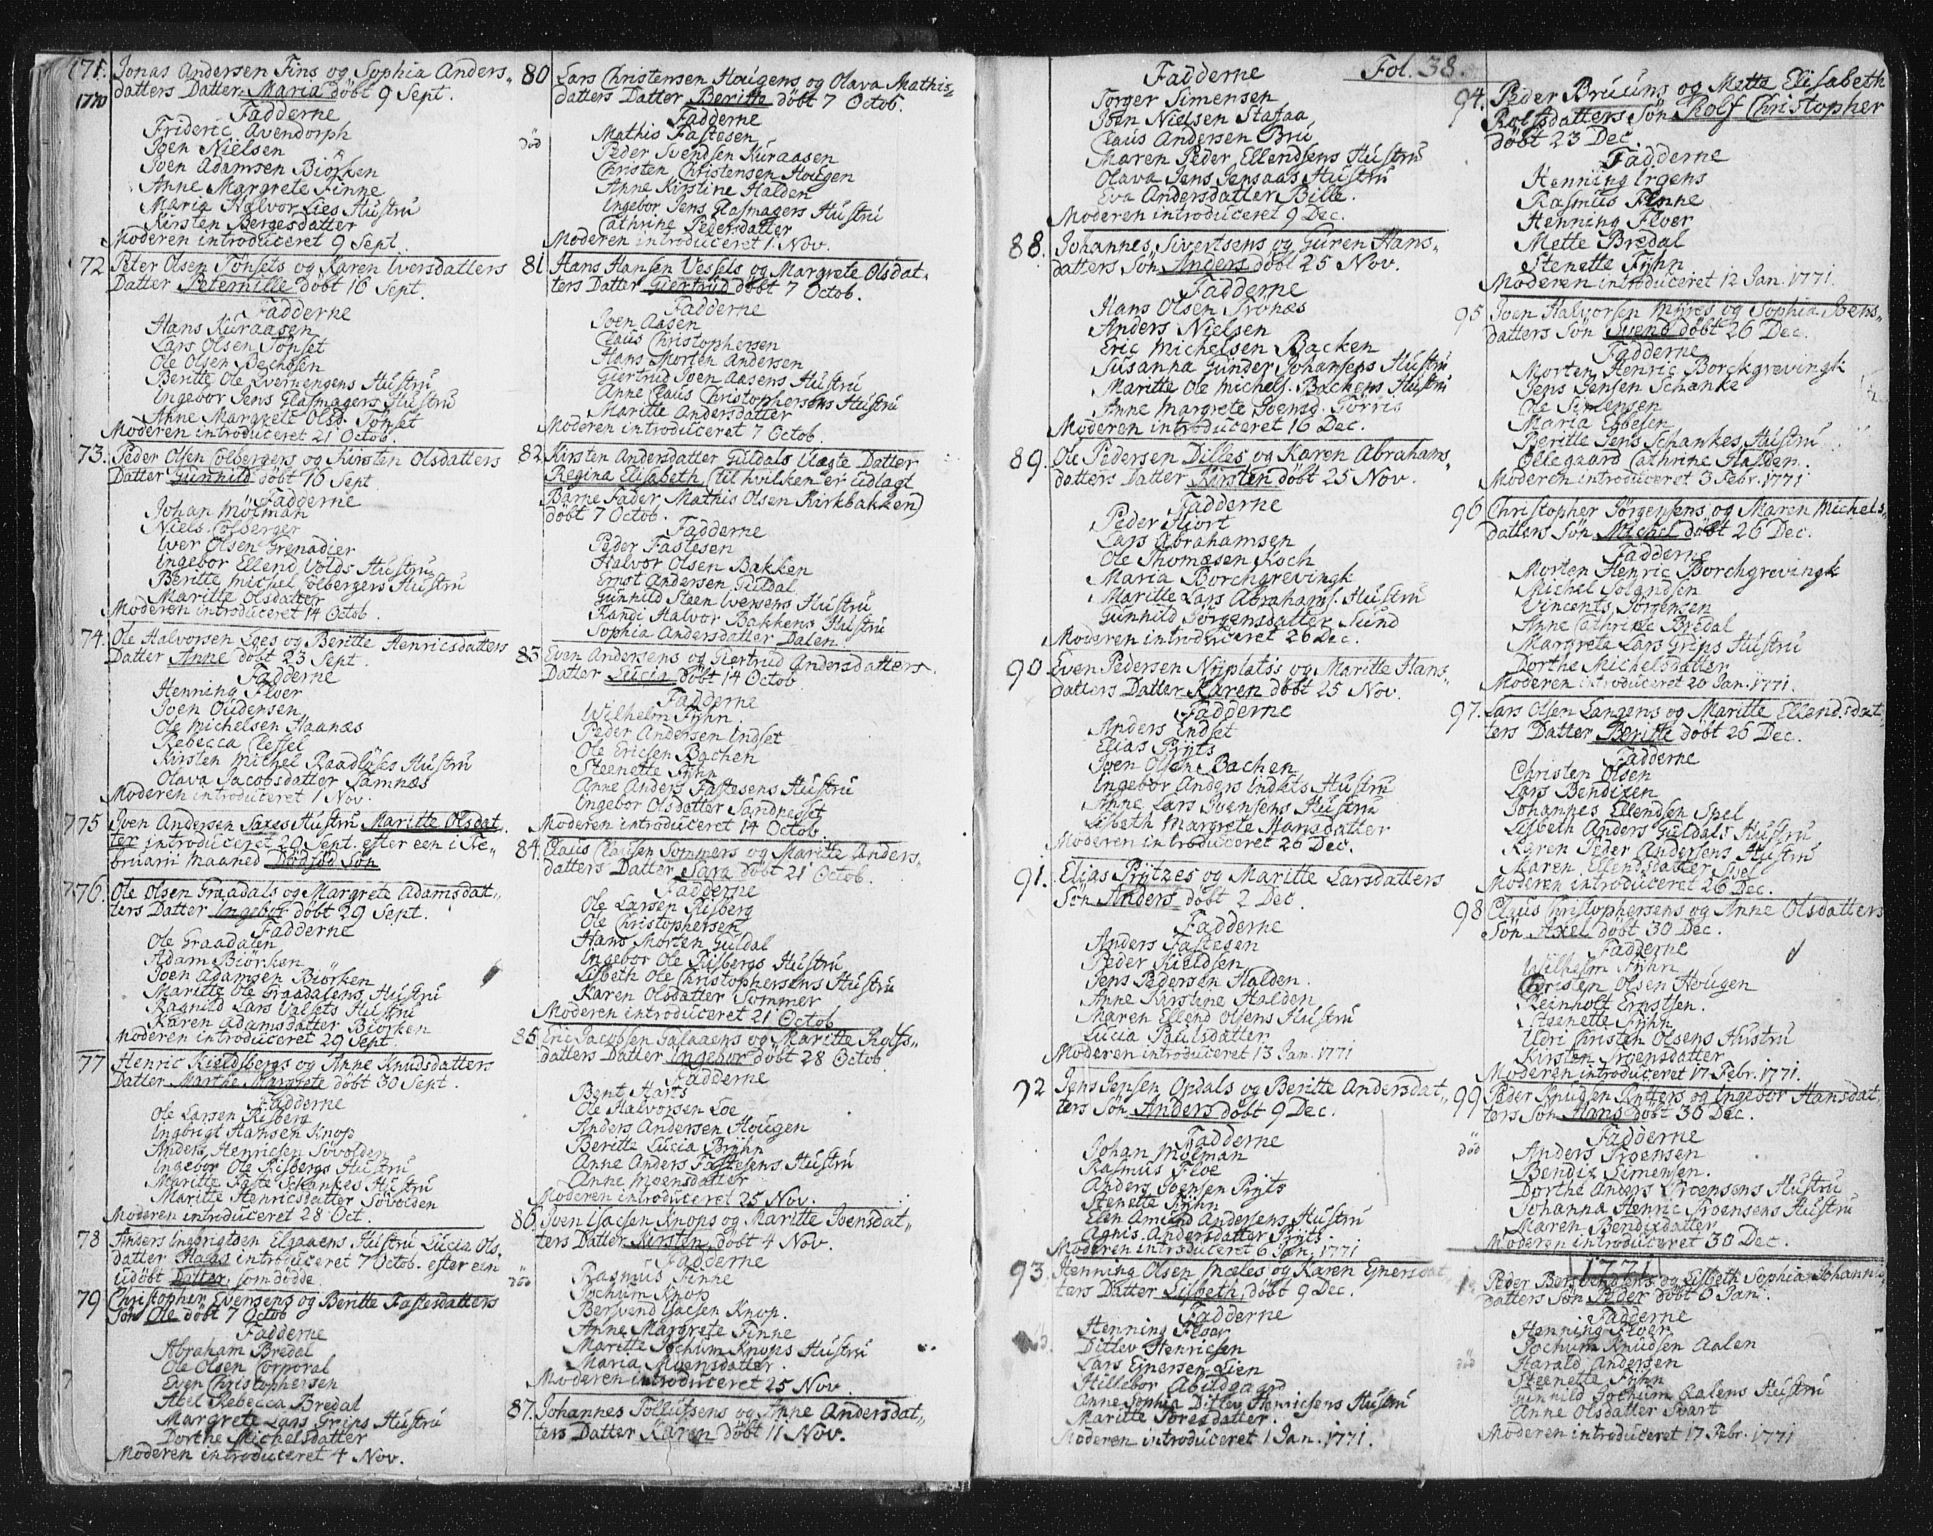 171. Jonas Andersen Fins og Sophia Anders-
1770 datters Datter Maria döbt 9 Sept.
Fadderne
Frideric Avendorph
Joen Nielsen
Joen Adamsen Biörken
Anne Margrete Finne
Maria Halvor Lies Hustru
Kirsten Bergesdatter
Moderen introduceret 9 Sept.
72 Peter Olsen Tönsets og Karen Iversdatters
Datter Peternille döbt 16 Sept.
Fadderne
Hans Kuraasen
Lars Olsen Tönset
Ole Olsen Bechosen
Beritte Ole Evernengens Hustru
Ingebor Jens Glasmagers Hustru
Anne Margrete Olsd. Tönset
Moderen introduceret 21 Octob.
73. Peder Olsen Colbergers og Kirsten Olsdatters
Datter Gunnild döbt 16 Sept.
Fadderne
Johan Mölman
Niels Colberger
Iver Olsen Grenadier
Ingebor Ellend Volds Hustru
Beritte Michel Colbergers Hustru
Maritte Olsdatter
Moderen introduceret 14 Octob.
74. Ole Halvorsen Loes og Beritte Henricsdatters
Datter Anne döbt 23 Sept.
Fadderne
Henning Floer
Joen Oudensen
Ole Michelsen Haanæs
Rebecca Clessel
Kirsten Michel Raadlöses Hustru
Olava Jacobsdatter Ramnæs
Moderen introduceret 1 Nov.
75 Joen Andersen Saxes Hustru Maritte Olsdat-
ter introduceret 20 Sept. efter een i Fe-
bruarii Maaned Dödföd Sön
76. Ole Olsen Graadals og Margrete Adamsdat-
ters Datter Ingebor döbt 29 Sept.
Fadderne
Ole Graadalen
Adam Biörken
Joen Adamsen Biörken
Maritte Ole Graadalens Hustru
Ragnild Lars Valsets Hustru
Karen Adamsdatter Biörken
Moderen introduceret 29 Sept.
77 Henric Kieldsbergs og Anne Knudsdatters
Datter Marthe Margrete döbt 30 Sept.
Fadderne
Ole Larsen Risberg
Ingbrigt Hansen Knop
Anders Henricsen Sövolden
Ingebor Ole Risbergs Hustru
Maritte Faste Schankes Hustru
Maritte Henricsdatter Sövolden
Moderen introduceret 28 Oct.
78 Anders Ingbrigtsen Elgaaens Hustru Lucia Ols-
datter Haans introduceret 7 Octob. efter een
udöbt Datter, som dödde
79 Christopher Evensens og Beritte Fastesdatters
Sön Ole döbt 7 Octob
Fadderne
Abraham Bredal
Ole Olsen Corporal
Even Christophersen
Abel Rebecca Bredal
Margrete Lars Grips Hustru
Dorthe Michelsdatter
Moderen introduceret 4 Nov.
80 Lars Christensen Hougens og Olava Mathis-
datters Datter Beritte döbt 7 Octob.
Fadderne
död Mathis Fastesen
Peder Svendsen Kuraasen
Christen Christensen Hougen
Anne Kirstine Halden
Ingebor Jens Glasmagers Hustru
Cathrine Pedersdatter
Moderen introduceret 1 Nov.
81 Hans Hansen Vessels og Margrete Olsdat-
ters Datter Giertrud döbt 7 Octob.
Fadderne
Joen Aasen
Claus Christophersen
Hans Morten Andersen
Giertrud Joen Aasens Hustru
Anne Claus Christophersens Hustru
Maritte Andersdatter
Moderen introduceret 7 Octob.
82 Kirsten Andersdatter Guldals Uægte Datter
Regina Elisabeth (til hvilken er udlagt
Barne Fader Mathis Olsen Kirkbakken)
döbt 7 Octob.
Fadderne
Peder Fastesen
Halvor Olsen Bakken
Ernst Andersen Guldal
Gunnild Steen Iversens Hustru
Randi Halvor Bakkens Hustru
Sophia Andersdatter Dalen
83 Even Andersens og Giertrud Andersdatters
Datter Lucia döbt 14 Octob
Fadderne
Wilhelm Fyhn
Peder Andersen Indset
Ole Ericsen Bachen
Steenette Fyhn
Anne Anders Fastesens Hustru
Ingebor Olsdatter Sandnesset
Moderen introduceret 14 Octob.
84. Claus Clausen Sommers og Maritte Anders-
datters Datter Sara döbt 21 Octob.
Fadderne
Ole Larsen Risberg
Ole Christophersen
Hans Morten Guldal
Ingebor Ole Risbergs Hustru
Lisbeth Ole Christophersens Hustru
Karen Olsdatter Sommer
Moderen introduceret 21 Octob
85. Eric Jacobsen Galaaens og Maritte Rolfs-
datters Datter Ingebor döbt 28 Octob
Fadderne
Bent Harts
Ole Halvorsen Loe
Anders Andersen Hougen
Beritte Lucia Bryhn
Anne Anders Fastesens Hustru
Anne Moensdatter
Moderen introduceret 25 Nov.
86. Joen Isacsen Knops og Maritte Joensdat-
ters Datter Kirsten döbt 4 Nov.
Fadderne
död Rasmus Finne
Jochum Knop
Bersvend Isacsen Knop.
Anne Margrete Finne
Maritte Jochum Knops Hustru
Maria Moensdatter.
Moderen introduceret 25 Nov.
87. Johannes Tollufsens og Anne Andersdat-
ters Datter Karen döbt 11 Nov.
Fadderne Fol. 38.
Torger Simensen
Joen Nielsen Stafaa
Claus Andersen Bru
Maren Peder Ellendsens Hustru
Olava Jens Jensaas Hustru
Eva Andersdatter Bille.
Moderen introduceret 9 Dec.
88. Johannes Sivertsens og Guren Hans-
datters Sön Anders döbt 25 Nov.
Fadderne
Hans Olsen Trönæs
Anders Nielsen
Eric Michelsen Backen
Susanna Gunder Johansens Hustru
Maritte Ole Michels. Backens Hustru
Anne Margrete Joensd. Torris
Moderen introduceret 16 Dec.
89. Ole Pedersen Dilles og Karen Abrahams-
datters Datter Kirsten döbt 25 Nov.
Fadderne
Peder Hiort
Lars Abrahamsen
Ole Thomæsen Koch
Maria Borchgrevingk
Maritte Lars Abrahams. Hustru
Gunnild Jörgensdatter Sund
Moderen introduceret 26 Dec.
90. Even Pedersen Nyplats's og Maritte Hans-
datters Datter Karen döbt 25 Nov.
Fadderne
Anders Indset
Elias Pryts
Joen Olsen Bachen
Ingebor Anders Indsets Hustru
Anne Lars Ivensens Hustru
Lisbeth Margrete Hansdatter
Moderen introduceret 26 Dec.
91. Elias Prytzes og Maritte Larsdatters
Sön Anders döbt 2 Dec.
Fadderne
Anders Fastesen
Peder Kieldsen
Jens Pedersen Halden.
Anne Kirstine Halden
Maren Ellend Olsens Hustru
Lucia Paulsdatter
Moderen introduceret 13 Jan. 1771
92 Jens Jensen Opdals og Beritte Andersdat-
ters Sön Anders döbt 9 Dec.
Fadderne
Johan Mölman
Rasmus Floe
Anders Joensen Pryts
Stenette Fyhn
Elen Amund Andersens Hustru
Agnis Andersdatter Pryts.
Moderen introduceret 6 Jan. 1771
93. Henning Olsen Inceles og Karen Ejnersdat-
ters Datter Lisbeth döbt 9 Dec.
Fadderne
Henning Floer
Ditlev Henricsen
Lars Ejnersen Lien
Hillebor Abildgaard
Anne Sophia Ditlev Henricsens Hustru
Maritte Toresdatter.
Moderen introduceret 1 Jan. 1771.
94. Peder Bruuns og Mette Elisabeth
Rolfsdatters Sön Rolf Christopher
döbt 23 Dec
Fadderne
Henning Irgens
Rasmus Finne
Henning Floer
Mette Bredal
Stenette Fyhn
Moderen introduceret 12 Jan. 1771
95 Joen Halvorsen Myres og Sophia Joens-
datters Sön Svend döbt 26 Dec.
Fadderne
Morten Henric Borckgrevingk
Jens Jensen Schanke
Ole Simensen
Maria Ebbesen
Beritte Jens Schankes Hustru
Ollegaard Cathrine Halden.
Moderen introduceret 3 Febr. 1771
96 Christopher Jörgensens og Maren Michels-
datters Sön Michel döbt 26 Dec.
Fadderne
Morten Henric Borchgrevingk
Michel Solandsen
Vincents Jörgensen
Anne Cathrine Bredal
Margrete Lars Grips Hustru
Dorthe Michelsdatter
Moderen introduceret 20 Jan. 1771.
97. Lars Olsen Langens og Maritte Ellendsdat-
ters Datter Beritte döbt 26 Dec.
Fadderne
Christen Olsen
Lars Bendixen
Johannes Ellendsen Spel
Lisbeth Anders Guldals Hustru
Karen Peder Andersens Hustru
Maren Ellendsdatter Spel
Moderen introduceret 26 Dec.
98 Claus Christophersens og Anne Olsdatters
Sön Axel döbt 30 Dec.
Fadderne
Wilhelm Fyhn
Christen Olsen Hougen
Reinholt Ernstsen
Steenette Fyhn
Uldri Christen Olsens Hustru
Kirsten Troensdatter
Moderen introduceret 17 Febr. 1771.
99. Peder Knudsen Knttens og Ingebor Hansdat-
ters Sön Hans döbt 30 Dec.
Fadderne
död Anders Troensen
Bendix Simensen.
Dorthe Anders Troensens Hustru
Johanna Henric Troensens Hustru
Maren Bendixdatter
Moderen introduceret 30 Dec.
1771
1. Peder Bersvendsens og Lisbeth Sophia Johannis
datters Sön Peder döbt 6 Jan.
Fadderne
Henning Floer
Jochum Knudsen Aalen
död Harald Andersen
Steenette Fyhn
Gunnild Jochum Aalens Hustru
Anne Olsdatter Svart
Moderen introduceret 17 Febr. 1771